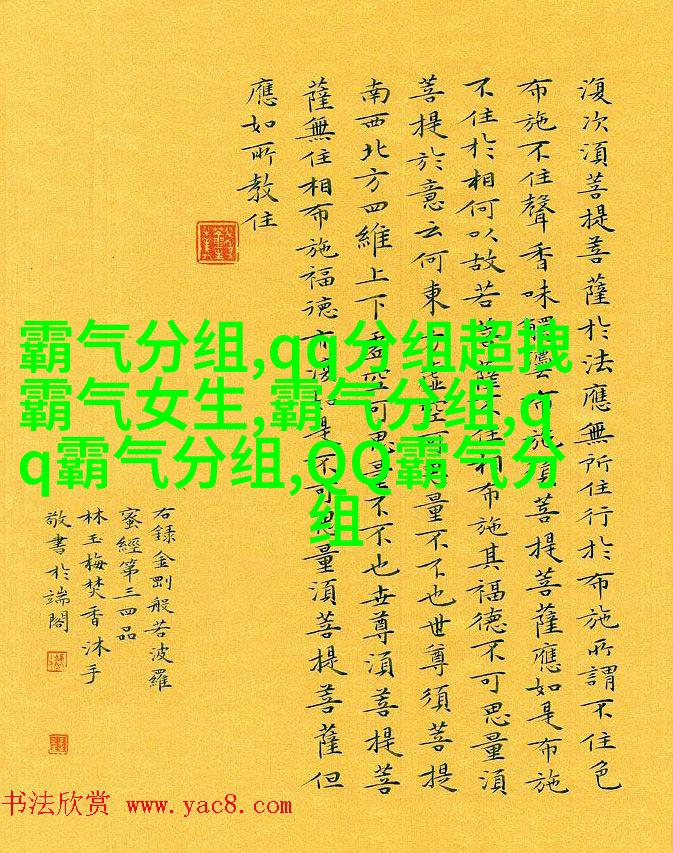 復次須菩提菩薩於法應無所住行於布施所謂不住色
布施不住聲香味觸法布施須菩提菩薩應如是布施
不住於相何以故若菩薩不住相布施其福德不可思量須
菩提於意云何東方虛空可思量不不也世尊須菩提
南西北方四維上下虛空可思量不不也世尊須菩提菩
薩無住相布施福德亦復如是不可思量須菩提菩薩但
應如所教住
右録金剛般若波羅
蜜經第三四品
林玉梅焚香沐手
敬書於端閣
霸气分组,qq分组超拽
霸气女生,霸气分组,q
q霸气分组,QQ霸气分
组
书法欣赏 www.yac8.com